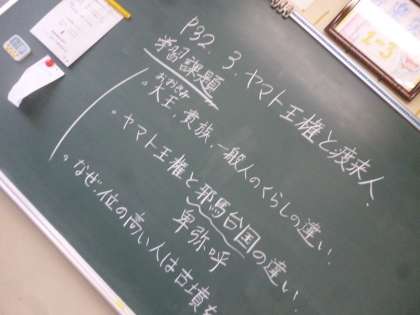 P32.3.ヤマト王権と渡来人、
学習課題
おおきみ
・大王、貴族、一般人のくらしの違い.
・ヤマト王権と邪馬台国の違い.
卑弥呼
・なぜ位の高い人は古墳を
1-3